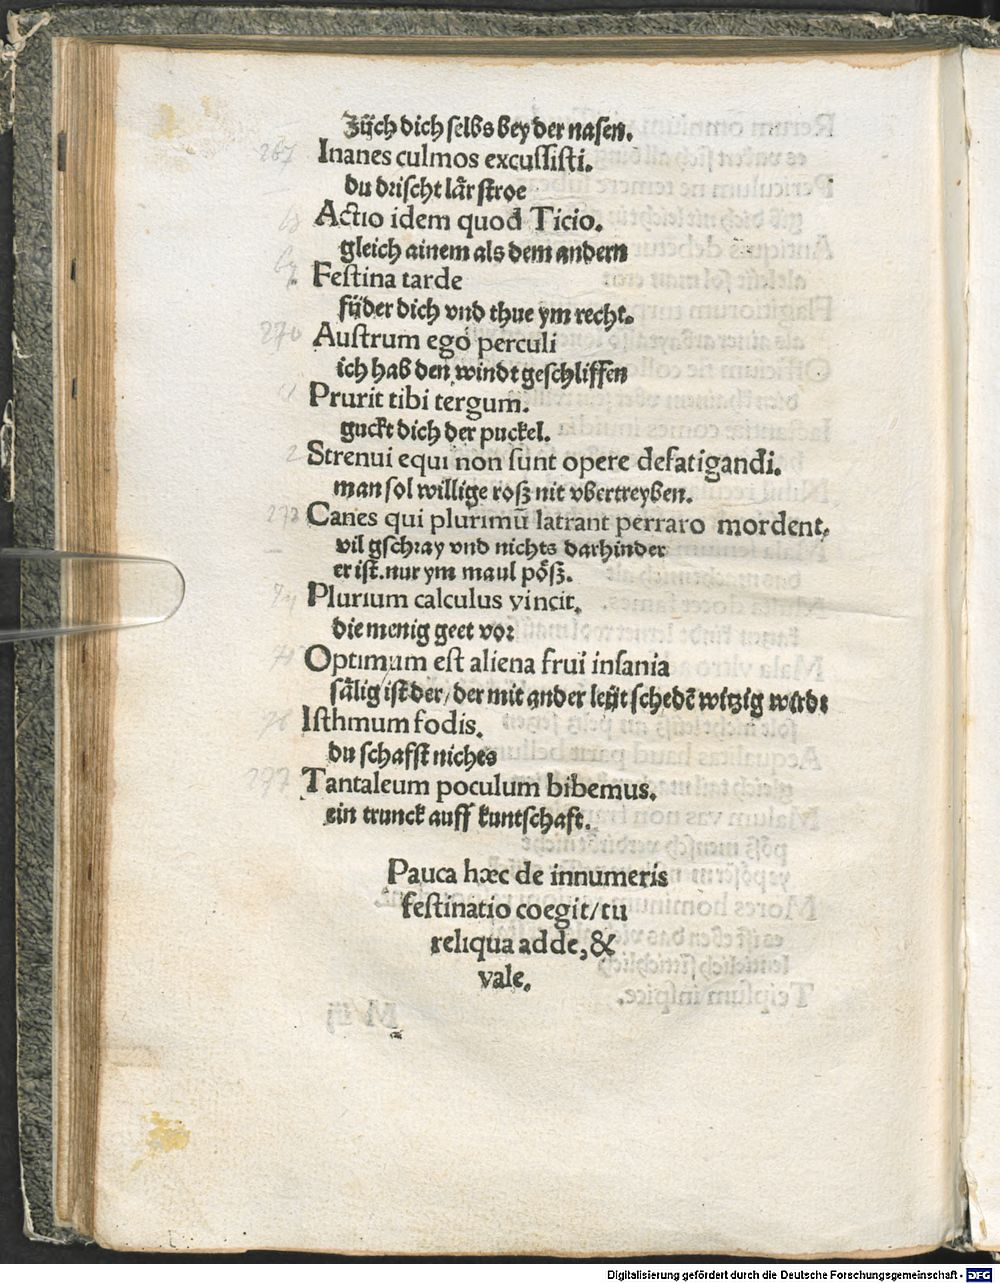 Zůch dich selbs bey der nasen.
267 Inanes culmos excussisti.
du drischt lår stroe
Actio idem quod Ticio.
gleich ainem als dem andern
Festina tarde
fůder dich vnd thue ym recht.
270 Austrum ego perculi
ich hab den windt geschliffen
Prurit tibi tergum.
guckt dich der puckel.
2 Strenui equi non sunt opere defatigandi.
man sol willige roß nit vbertreyben.
273 Canes qui plurimū latrant perraro mordent,
vil gschray vnd nichts darhinder
er ist.nur ym maul pöß.
74 Plurium calculus vincit.
die menig geet vor
Optimum est aliena frui insania
sålig ist der/der mit ander leůt schedē witzig wirdt
76 Isthmum fodis.
du schaffst nichts
Tantaleum poculum bibemus.
ein trunck auff kuntschaft.
Pauca hæc de innumeris
festinatio coegit/tu
reliqua adde, &
vale.
Digitalisierung gefördert durch die Deutsche Forschungsgemeinschaft - DFG